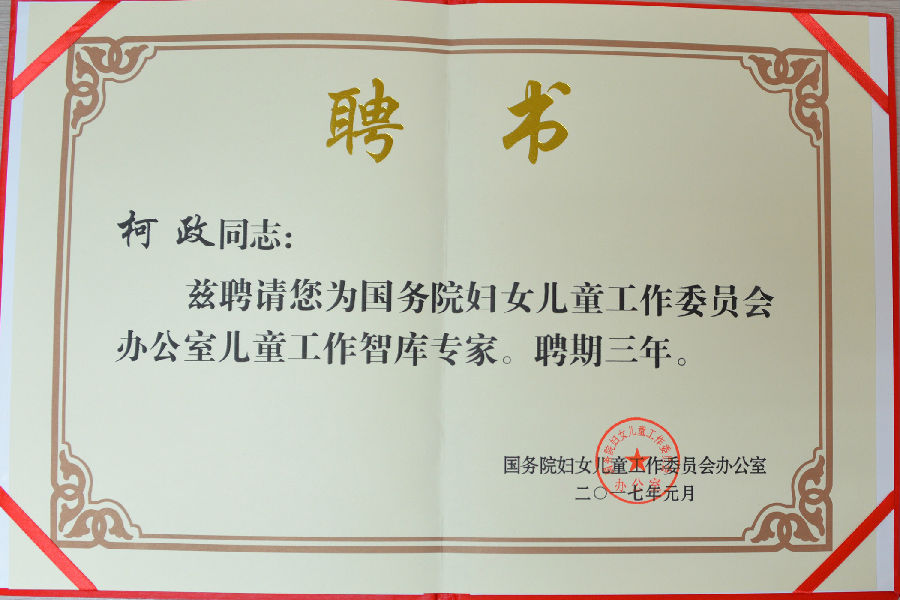 聘书
柯政同志：
兹聘请您为国务院妇女儿童工作委员会
办公室儿童工作智库专家。聘期三年。
国务院妇女儿童工作委员会办公室
二〇一七年元月
国务院妇女儿童工作委员会
办公室